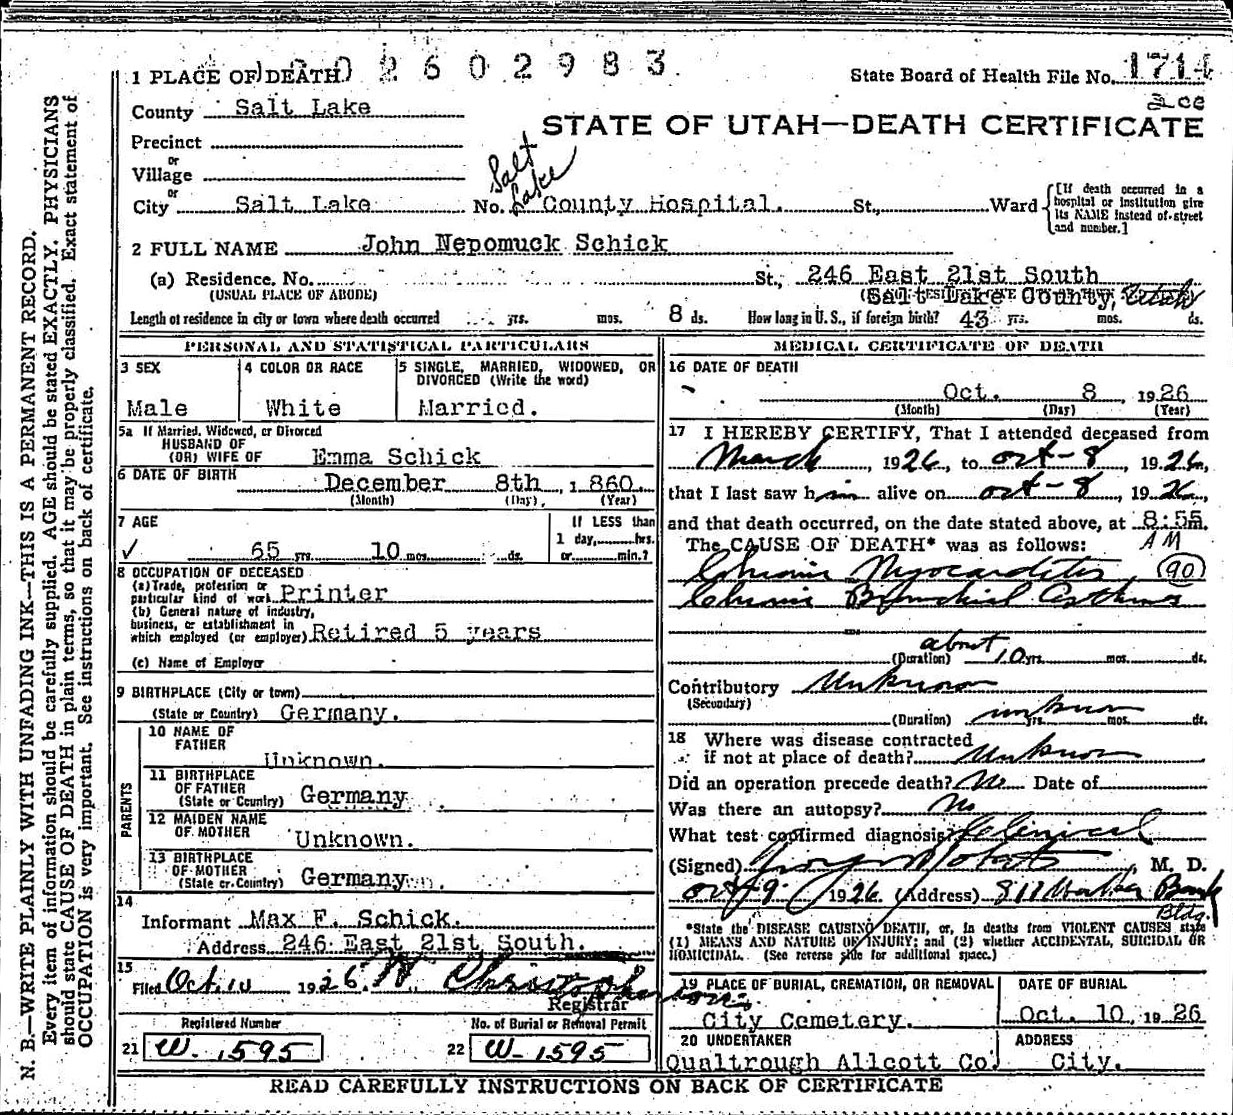 N. B.—WRITE PLAINLY WITH UNFADING INK—THIS IS A PERMANENT RECORD.
Every item of information should be carefully supplied. AGE should be stated EXACTLY. PHYSICIANS
should state CAUSE OF DEATH in plain terms, so that it may be properly classified. Exact statement of
OCCUPATION is very important. See instructions on back of certificate.
2602983
1 PLACE OF DEATH
State Board of Health File No. 1714
County Salt Lake
STATE OF UTAH—DEATH CERTIFICATE
Precinct
or
Village
or
City Salt Lake No. Salt Lake County Hospital. St., Ward
[If death occurred in a
hospital or institution give
its NAME instead of street
and number.]
2 FULL NAME John Nepomuck Schick
(a) Residence. No. St., 246 East 21st South
(USUAL PLACE OF ABODE)
Salt Lake County, Utah
Length of residence in city or town where death occurred yrs. mos. 8 ds. How long in U. S., if foreign birth? 43 yrs. mos. ds.
PERSONAL AND STATISTICAL PARTICULARS
3 SEX
Male
4 COLOR OR RACE
White
5 SINGLE, MARRIED, WIDOWED, OR
DIVORCED (Write the word)
Married.
5a If Married, Widowed, or Divorced
HUSBAND OF
(OR) WIFE OF Emma Schick
6 DATE OF BIRTH
December 8th, 1860.
(Month) (Day), (Year)
7 AGE
✓ 65 yrs. 10 mos. ds.
If LESS than
1 day, hrs.
or min.?
8 OCCUPATION OF DECEASED
(a) Trade, profession or
particular kind of work Printer
(b) General nature of industry,
business, or establishment in
which employed (or employer) Retired 5 years
(c) Name of Employer
9 BIRTHPLACE (City or town)
(State or Country) Germany.
PARENTS
10 NAME OF
FATHER
Unknown.
11 BIRTHPLACE
OF FATHER
(State or Country) Germany
12 MAIDEN NAME
OF MOTHER
Unknown.
13 BIRTHPLACE
OF MOTHER
(State or Country) Germany
14
Informant Max F. Schick.
Address 246 East 21st South.
15
Filed Oct. 10 1926. W Christopherson
Registrar
Registered Number
21 W-1595
No. of Burial or Removal Permit
22 W-1595
MEDICAL CERTIFICATE OF DEATH
16 DATE OF DEATH
Oct. 8 1926
(Month) (Day) (Year)
17 I HEREBY CERTIFY, That I attended deceased from
March, 1926, to Oct-8, 1926,
that I last saw him alive on Oct-8, 1926,
and that death occurred, on the date stated above, at 8:55 m.
AM
The CAUSE OF DEATH* was as follows:
Chronic Myocarditis, 90
Chronic Bronchial Asthma
about
(Duration) 10 yrs. mos. ds.
Contributory Unknown
(Secondary)
(Duration) unknown yrs. mos. ds.
18 Where was disease contracted
if not at place of death? Unknown
Did an operation precede death? No Date of
Was there an autopsy? No
What test confirmed diagnosis? Clinical
(Signed) Roberts, M. D.
Oct 9 1926 (Address) 811 Walker Bank
Bldg.
*State the DISEASE CAUSING DEATH, or, in deaths from VIOLENT CAUSES state
(1) MEANS AND NATURE OF INJURY; and (2) whether ACCIDENTAL, SUICIDAL OR
HOMICIDAL. (See reverse side for additional space.)
19 PLACE OF BURIAL, CREMATION, OR REMOVAL
City Cemetery.
DATE OF BURIAL
Oct. 10, 1926
20 UNDERTAKER
Qualtrough Allcott Co.
ADDRESS
City.
READ CAREFULLY INSTRUCTIONS ON BACK OF CERTIFICATE